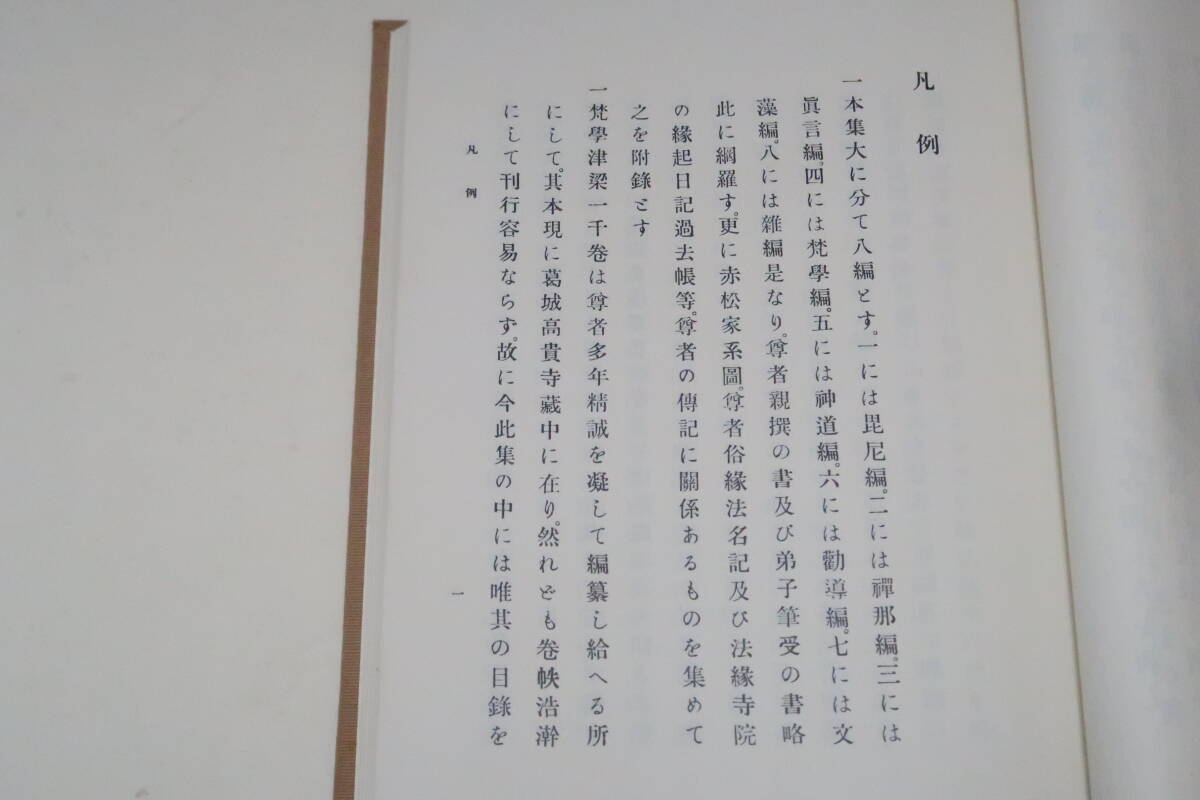 凡例
一本集大に分て八編とす。一には毘尼編。二には禪那編。三には
眞言編。四には梵學編。五には神道編。六には勸導編。七には文
藻編。八には雜編是なり。尊者親撰の書及び弟子筆受の書略
此に綱羅す。更に赤松家系圖。尊者俗緣法名記及び法緣寺院
の緣起日記過去帳等。尊者の傳記に關係あるものを集めて
之を附錄とす
一梵學津梁一千卷は尊者多年精誠を凝して編纂し給へる所
にして。其本現に葛城高貴寺藏中に在り。然れども卷帙浩澣
にして刊行容易ならず。故に今此集の中には唯其の目錄を
凡例
一